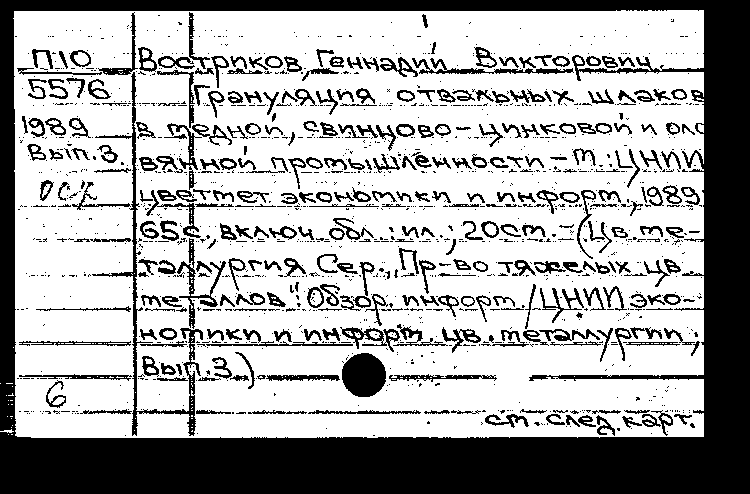 П10 Востриков, Геннадий Викторович.
5576 Грануляция отвальных шлаков
1989 в медной, свинцово-цинковой и оло
Вып.3. вянной промышленности. - М.: ЦНИИ
цветмет экономики и информ., 1989.
65с., включ. обл.: ил.; 20см. - (Цв. ме-
таллургия. Сер., Пр-во тяжелых цв.
металлов": Обзор. информ. / ЦНИИ эко-
номики и информ. цв. металлургии;
Вып. 3.)
6
см. след. карт.